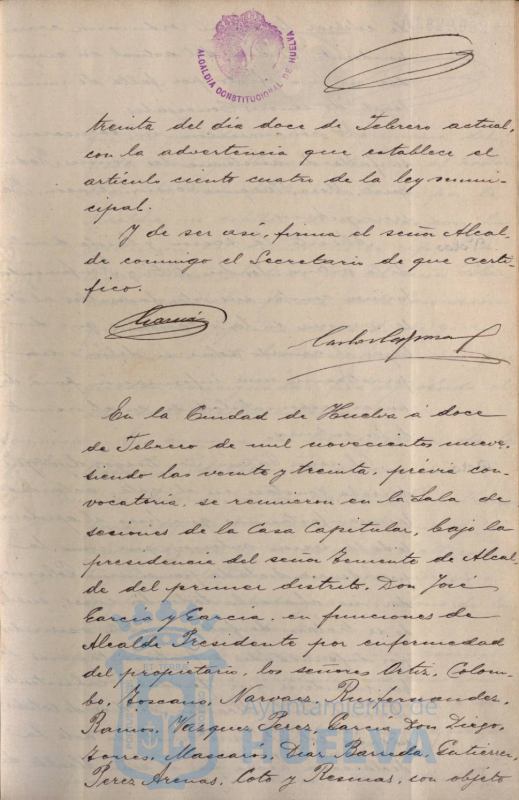 ALCALDÍA CONSTITUCIONAL DE HUELVA
treinta del dia doce de Febrero actual,
con la advertencia que establece el
artículo ciento cuatro de la ley muni-
cipal.
Y de ser así, firma el señor Alcal-
de conmigo el Secretario de que certi-
fico.
García
En la Ciudad de Huelva á doce
de Febrero de mil novecientos nueve,
siendo las veinte y treinta, prévia con-
vocatoria, se reunieron en la Sala de
sesiones de la Casa Capitular, bajo la
presidencia del señor Teniente de Alcal-
de del primer distrito, Don José
García y García, en funciones de
Alcalde Presidente por enfermedad
del propietario, los señores Ortiz, Colom-
bo, Toscano, Narvaez,
Ramos, Vázquez Perez, García Don Diego,
Torres, Mascarós, Diaz Barreda, Gutierrez,
Perez Arenas, Coto y Resinas, con objeto
Ayuntamiento de
HUELVA